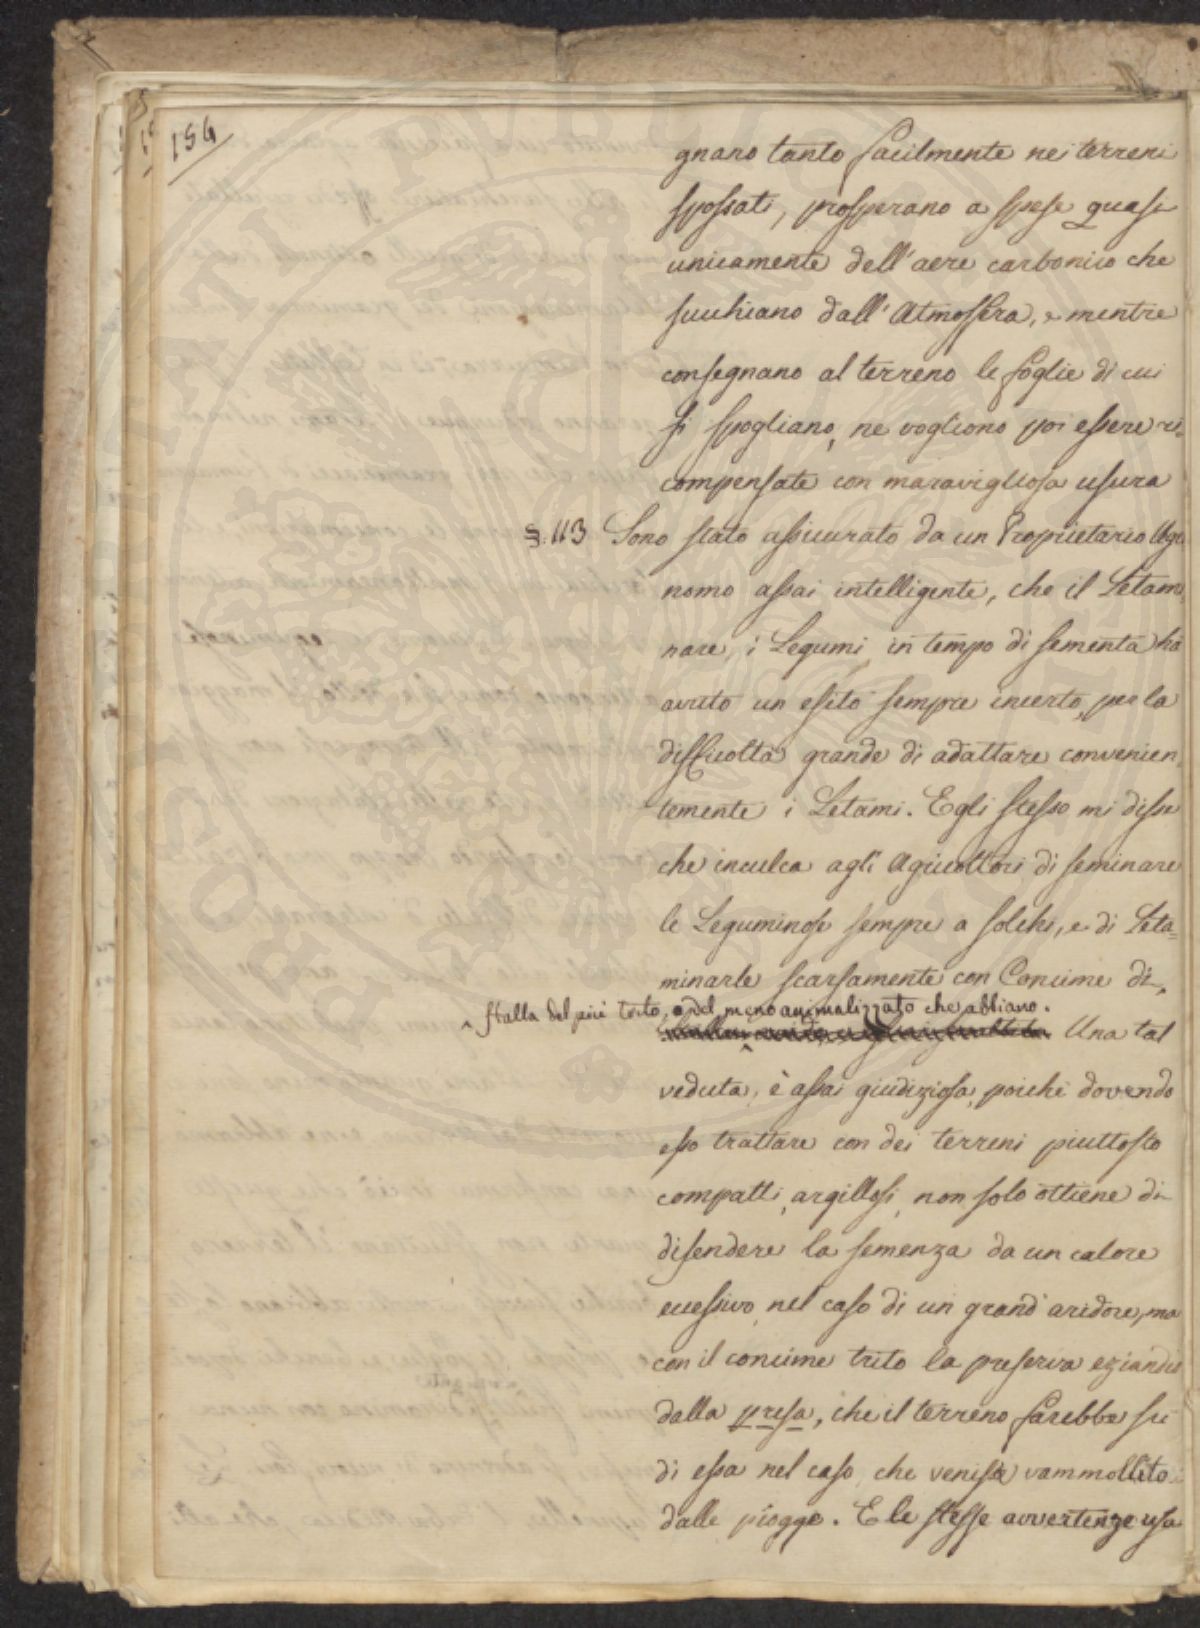 154
gnano tanto facilmente nei terreni
spossati, prosperano a spese quasi
unicamente dell'aere carbonico che
succhiano dall'Atmosfera, e mentre
consegnano al terreno le foglie di cui
si spogliano, ne vogliono poi essere ri-
compensate con maravigliosa usura
§. 113 Sono stato assicurato da un Proprietario Agro
nomo assai intelligente, che il Letami
nare, i Legumi in tempo di sementa ha
avuto un esito sempre incerto, per la
difficoltà grande di adattare convenien
temente i Letami. Egli stesso mi disse
che inculca agli Agricoltori di seminare
le Leguminose sempre a solchi, e di Leta=
minarle scarsamente con Concime di
stalla del più trito, o del meno animalizzato che abbiano.
Una tal
veduta, è assai giudiziosa, poichè dovendo
esso trattare con dei terreni piuttosto
compatti, argillosi, non solo ottiene di
difendere la semenza da un calore
eccessivo, nel caso di un grand' aridore, ma
con il concime trito la preserva eziandio
dalla presa, che il terreno farebbe su
di essa nel caso, che venisse rammollito
dalle piogge. E le stesse avvertenze usa
PROSPERITATI PVBLICAE